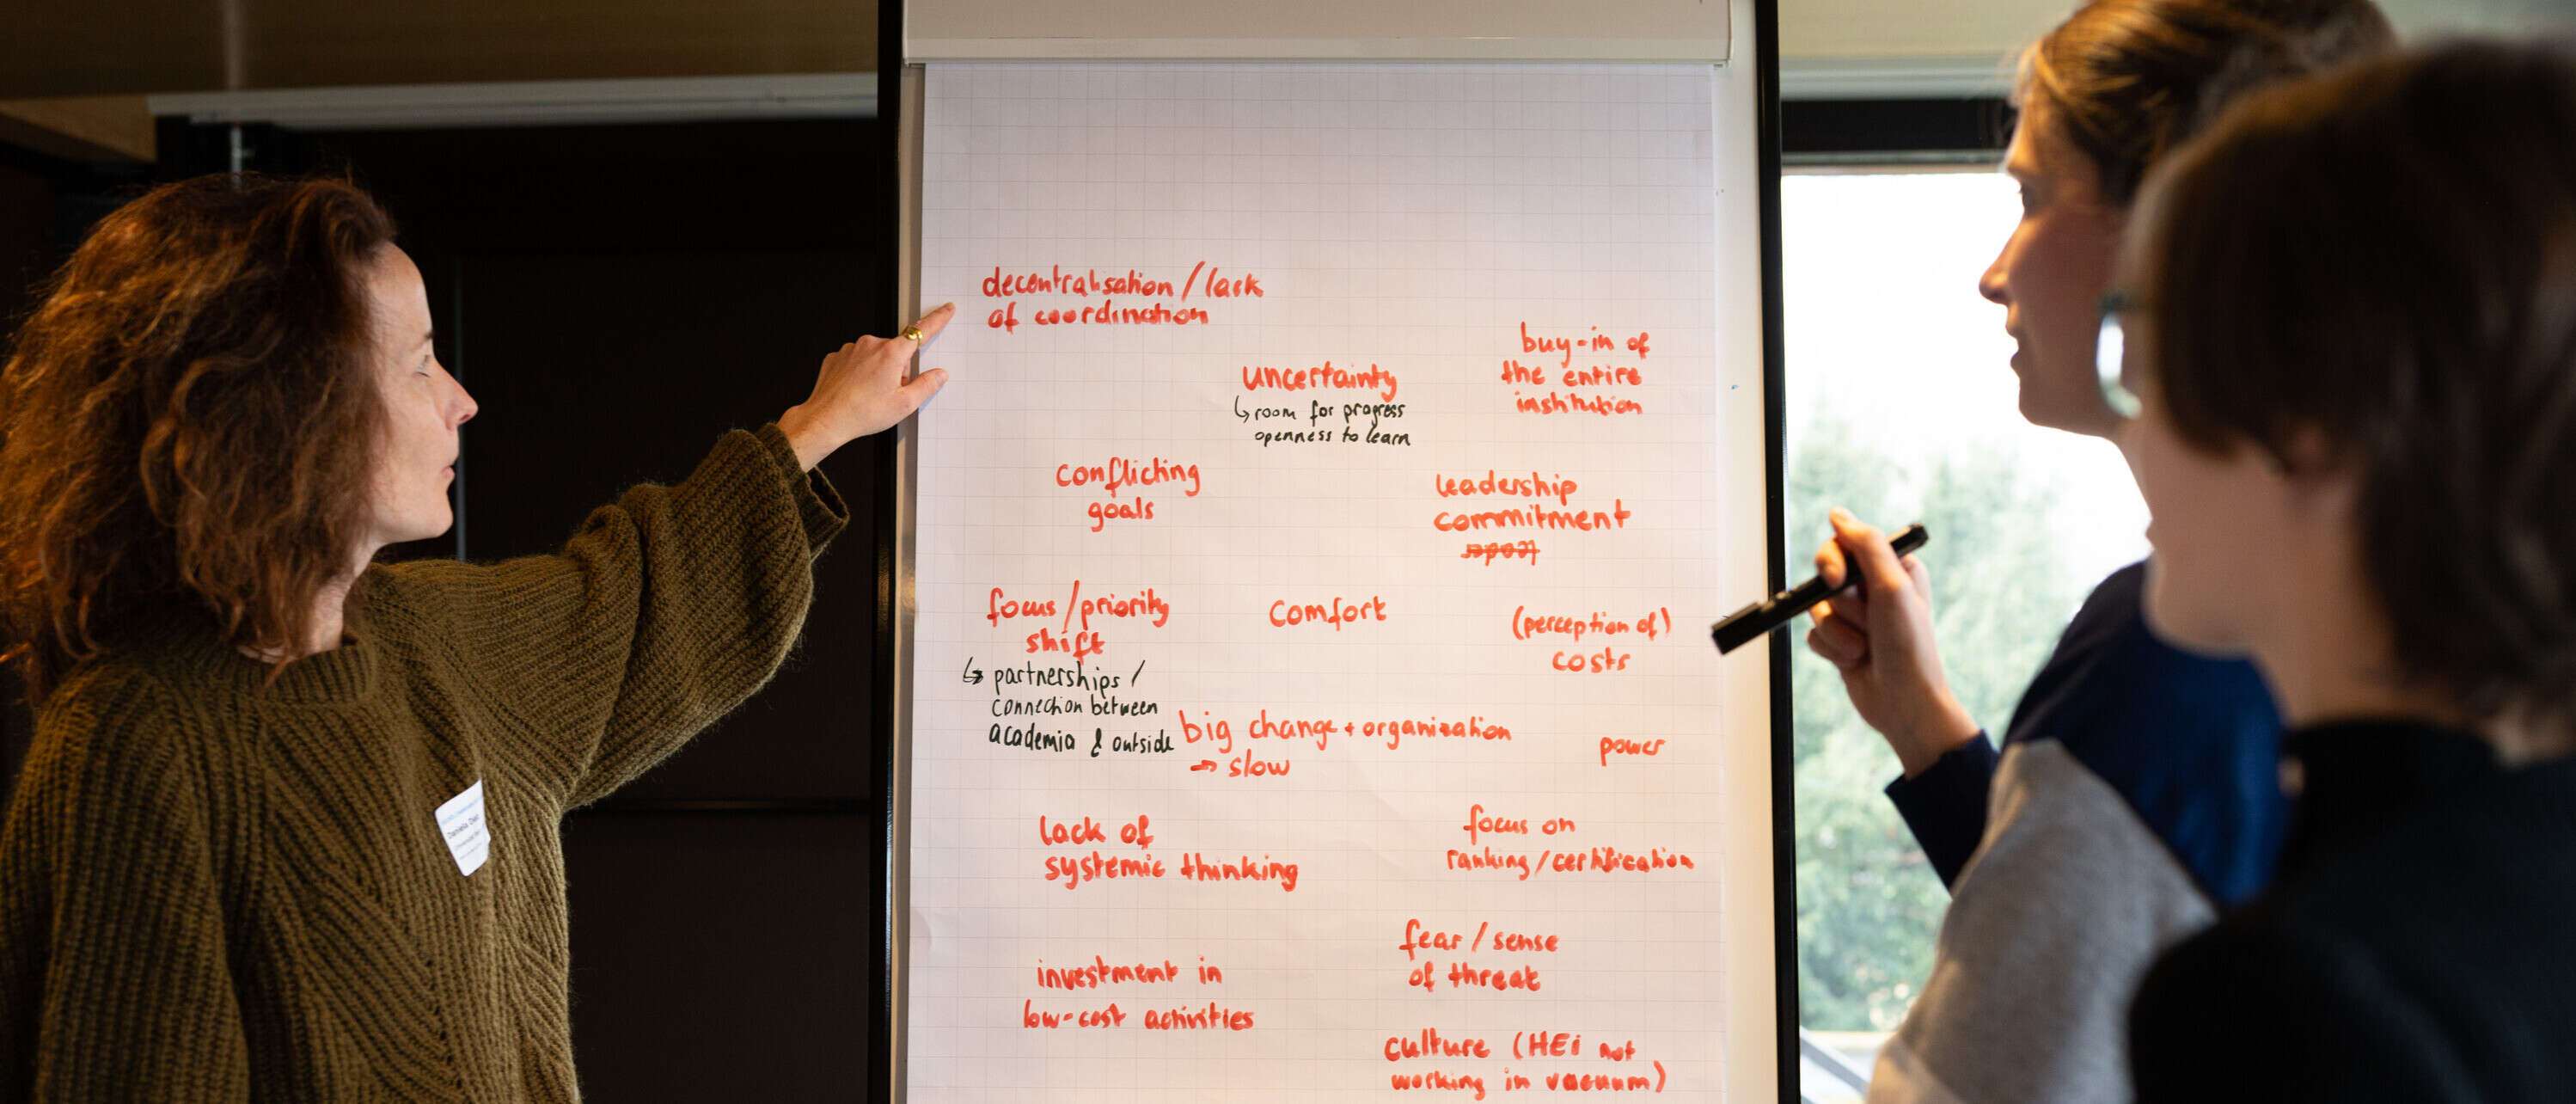 decentralisation / lack
of coordination
uncertainty
↳ room for progress
openness to learn
buy-in of
the entire
institution
conflicting
goals
leadership
commitment
focus / priority
shift
↳ partnerships /
connection between
academia & outside
comfort
(perception of)
costs
big change + organization
→ slow
power
lack of
systemic thinking
focus on
ranking / certification
investment in
low-cost activities
fear / sense
of threat
culture (HEi not
working in vacuum)
Daniela